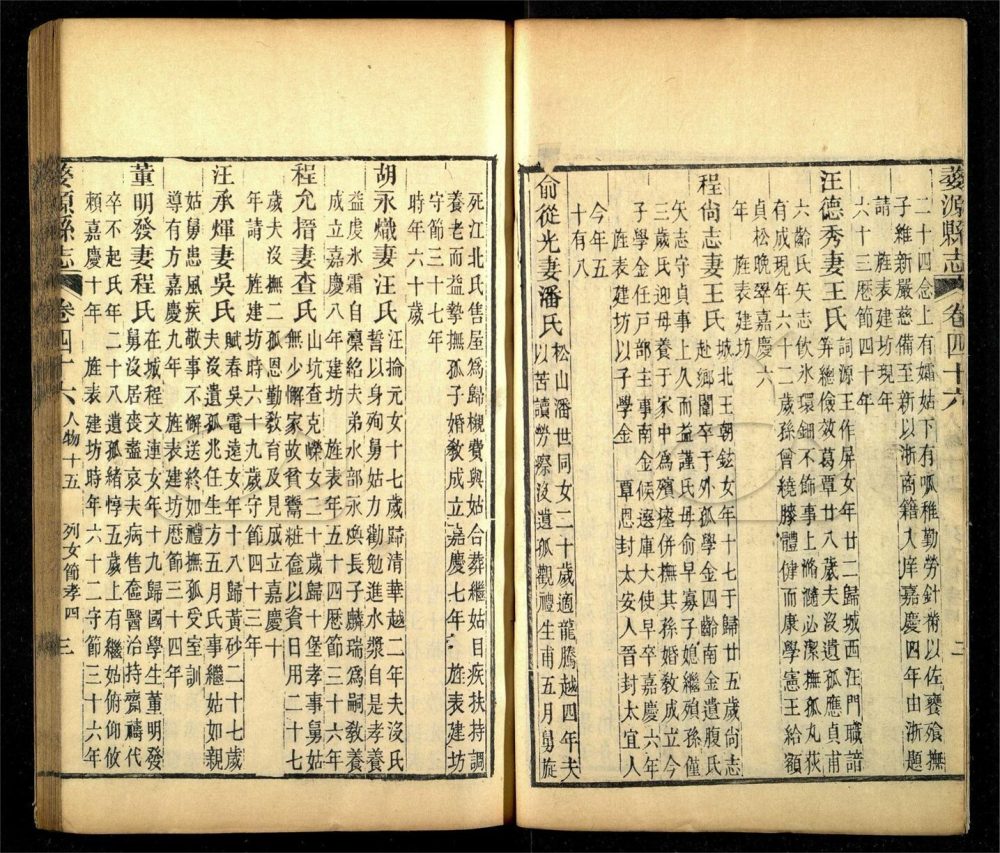 婺源縣志 卷四十六
二十四念上有孀姑下有呱稚勤勞針黹以佐饔飱撫
子維新嚴慈備至新以浙商籍入庠嘉慶四年由浙題
請 旌表建坊現年
六十三歷節四十年
汪德秀妻王氏 詞源王作屏女年廿二歸城西汪門職諳
筓總儉效葛覃廿八歲夫沒遺孤應貞甫
六齡氏矢志飲氷環鈿不飾事上滫瀡必潔撫孤丸荻
有成現年六十二歲孫曾繞膝體健而康學憲王給額
貞松晩翠嘉慶六
年 旌表建坊
程尙志妻王氏 城北王朝鉉女年十七于歸廿五歲尙志
赴鄉闈卒于外孤學金四齡南金遺腹氏
矢志守貞事上久而益謹氏毋俞早寡子媳繼殞孫僅
三歲氏迎毋養于家中爲殯塟併撫其孫婚敎成立今
子學金任戶部主事南金候選庫大使早卒嘉慶六年
旌表建坊以子學金 覃恩封太安人晉封太宜人
今年五
十有八
俞從光妻潘氏 松山潘世同女二十歲適龍騰越四年夫
以苦讀勞瘵沒遺孤觀禮生甫五月舅旋
死江北氏售屋爲歸櫬費與姑合葬繼姑目疾扶持調
養老而益摯撫孤子婚敎成立嘉慶七年 旌表建坊
守節三十七年
時年六十歲
胡永熾妻汪氏 汪掄元女十七歲歸清華越二年夫沒氏
誓以身殉舅姑力勸勉進水漿自是孝養
益虔氷霜自凜紹夫弟水部永煥長子麟瑞爲嗣敎養
成立嘉慶八年建坊 旌表年五十四歷節三十六年
程允搢妻查氏 山坑查克嶸女二十歲歸十堡孝事舅姑
無少懈家故貧鬻粧奩以資日用二十七
歲夫沒撫二孤恩勤敎育及見成立嘉慶十
年請 旌建坊時六十九歲守節四十三年
汪承煇妻吳氏 賦春吳電遠女年十八歸黃砂二十七歲
夫沒遺孤兆任生方五月氏事繼姑如親
姑舅患風疾敬事不懈送終如禮撫孤受室訓
導有方嘉慶九年 旌表建坊歷節三十四年
董明發妻程氏 在城程文連女年十九歸國學生董明發
舅沒居喪盡哀夫病售奩醫治持齋禱代
卒不起氏年二十八遺孤緒惇五歲上有繼姑俯仰攸
賴嘉慶十年 旌表建坊時年六十二守節三十六年
婺源縣志 卷四十六 人物十五 列女節孝四 三